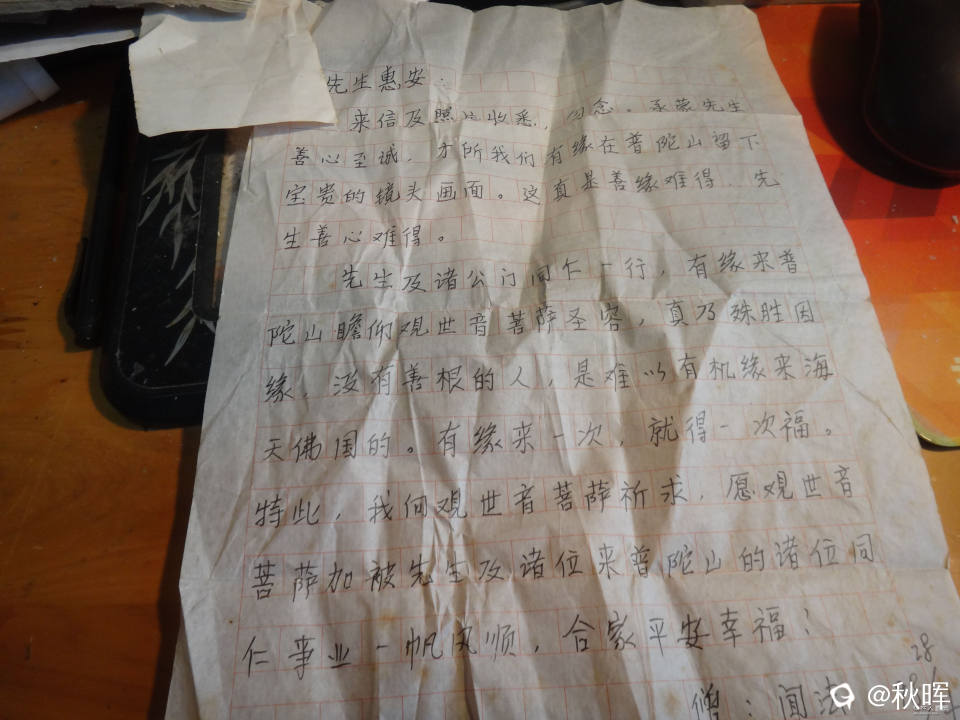 先生惠安：
来信及照片收悉，勿念。承蒙先生
善心至诚，才所我们有缘在普陀山留下
宝贵的镜头画面。这真是善缘难得，先
生善心难得。
先生及诸公门同仁一行，有缘来普
陀山瞻仰观世音菩萨圣容，真乃殊胜因
缘，没有善根的人，是难以有机缘来海
天佛国的。有缘来一次，就得一次福。
特此，我向观世音菩萨祈求，愿观世音
菩萨加被先生及诸位来普陀山的诸位同
仁事业一帆风顺，合家平安幸福！
僧：闻法
28
@秋晖